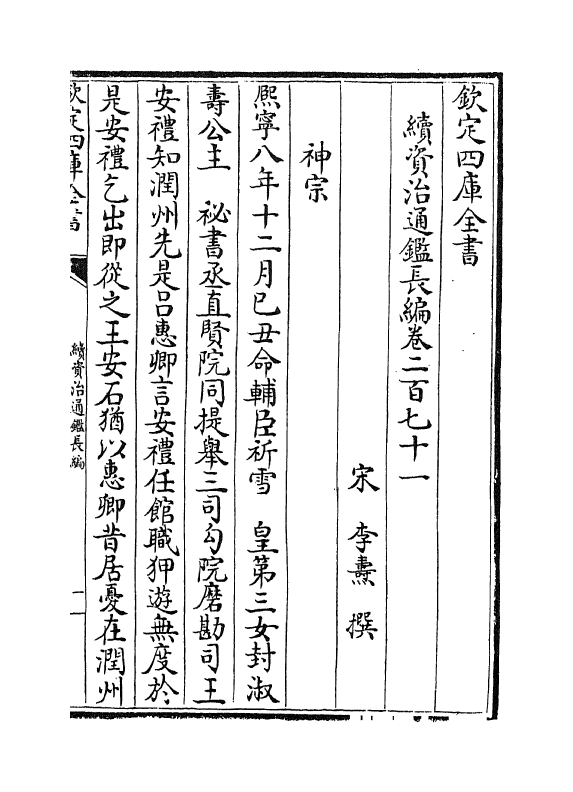 欽定四庫全書
續資治通鑑長編卷二百七十一
宋 李燾 撰
神宗
熙寧八年十二月已丑命輔臣祈雪 皇第三女封淑
壽公主 祕書丞直賢院同提舉三司勾院磨勘司王
安禮知潤州先是呂惠卿言安禮任館職狎遊無度於
是安禮乞出即從之王安石猶以惠卿昔居憂在潤州
欽定四庫全書
續資治通鑑長編